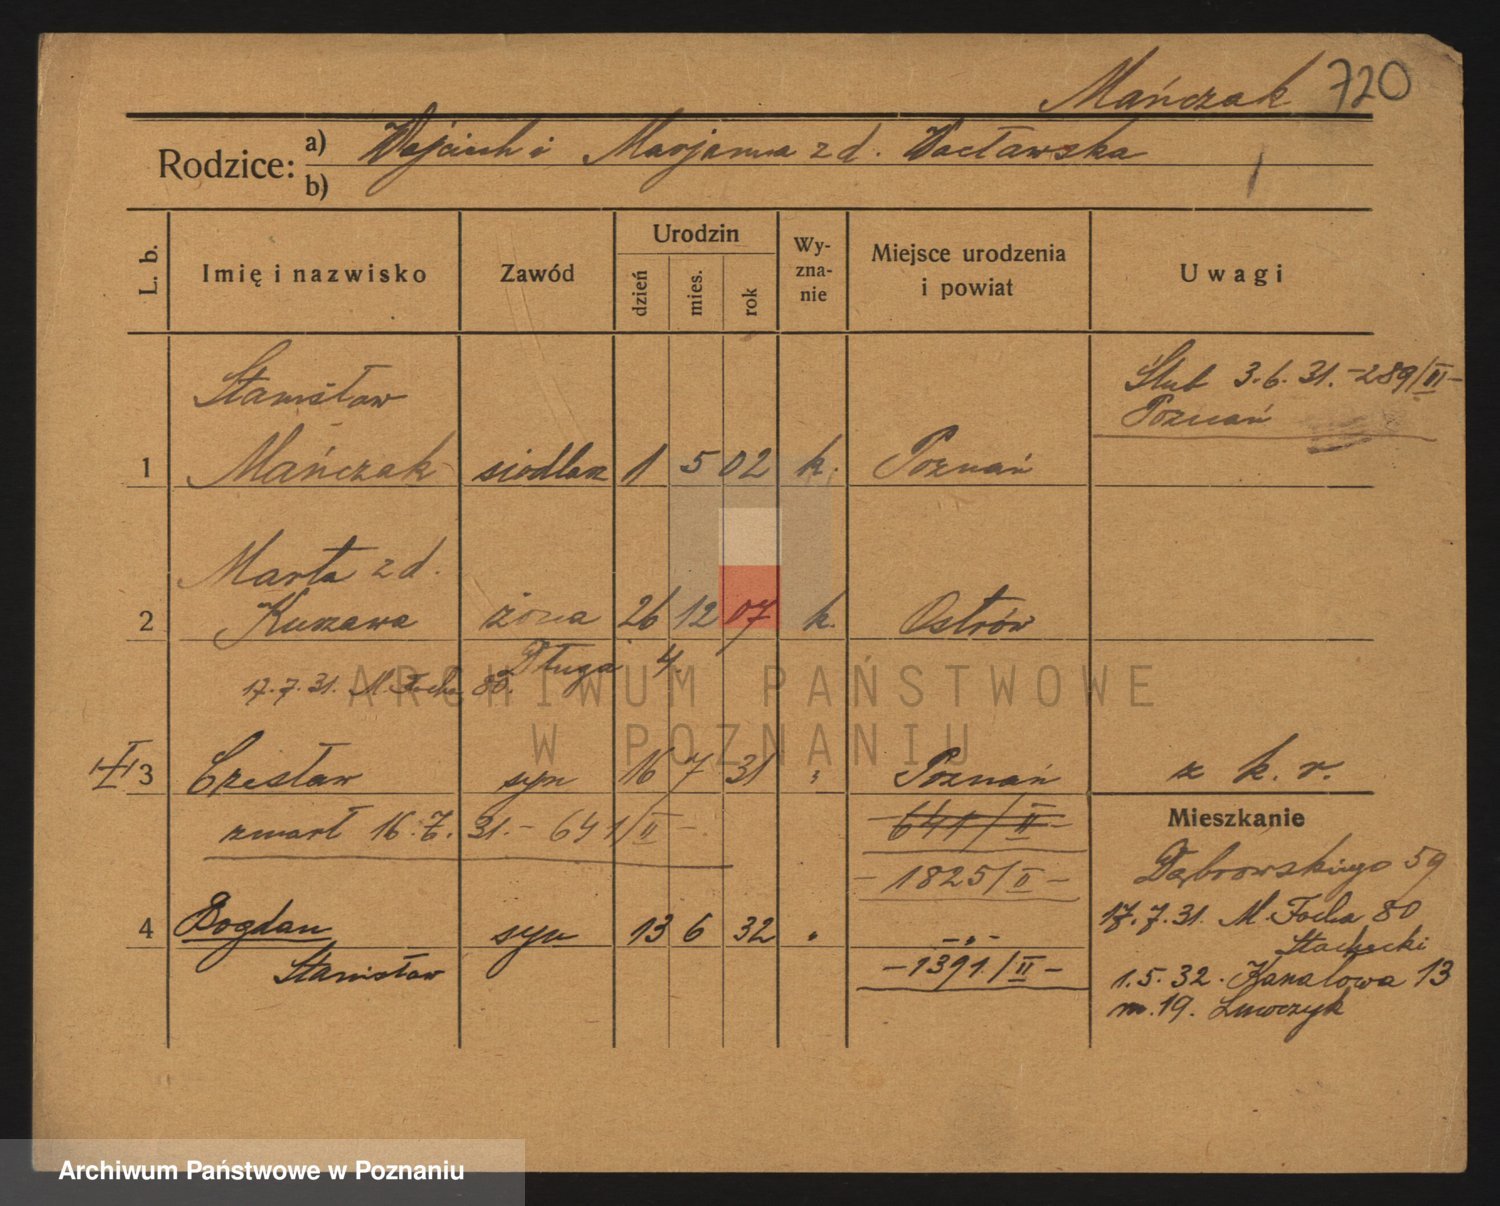 Mańczak 720
Rodzice: a) Wojciech i Marjanna z d. Wacławska
b)
L. b. Imię i nazwisko Zawód Urodzin dzień mies. rok Wy-zna-nie Miejsce urodzenia i powiat Uwagi
Ślub 3.6.31.-289/III-
Poznań
Stanisław
1 Mańczak siodlarz 1 5 02 k. Poznań
Marta z d.
2 Kurzawa żona 26 12 07 k. Ostrów
Długa 4.
17.7.31. M. Focha 80.
3 Czesław syn 16 7 31 " Poznań z k. r.
zmarł 16.7.31.- 641/II -
- 641/II -
- 1825/II -
4 Bogdan syn 13 6 32 " - " -
Stanisław
- 1391/II -
Mieszkanie
Dąbrowskiego 59
17.7.31. M. Focha 80
Stachecki
1.5.32. Kanałowa 13
m.19.
ARCHIWUM PAŃSTWOWE
W POZNANIU
Archiwum Państwowe w Poznaniu